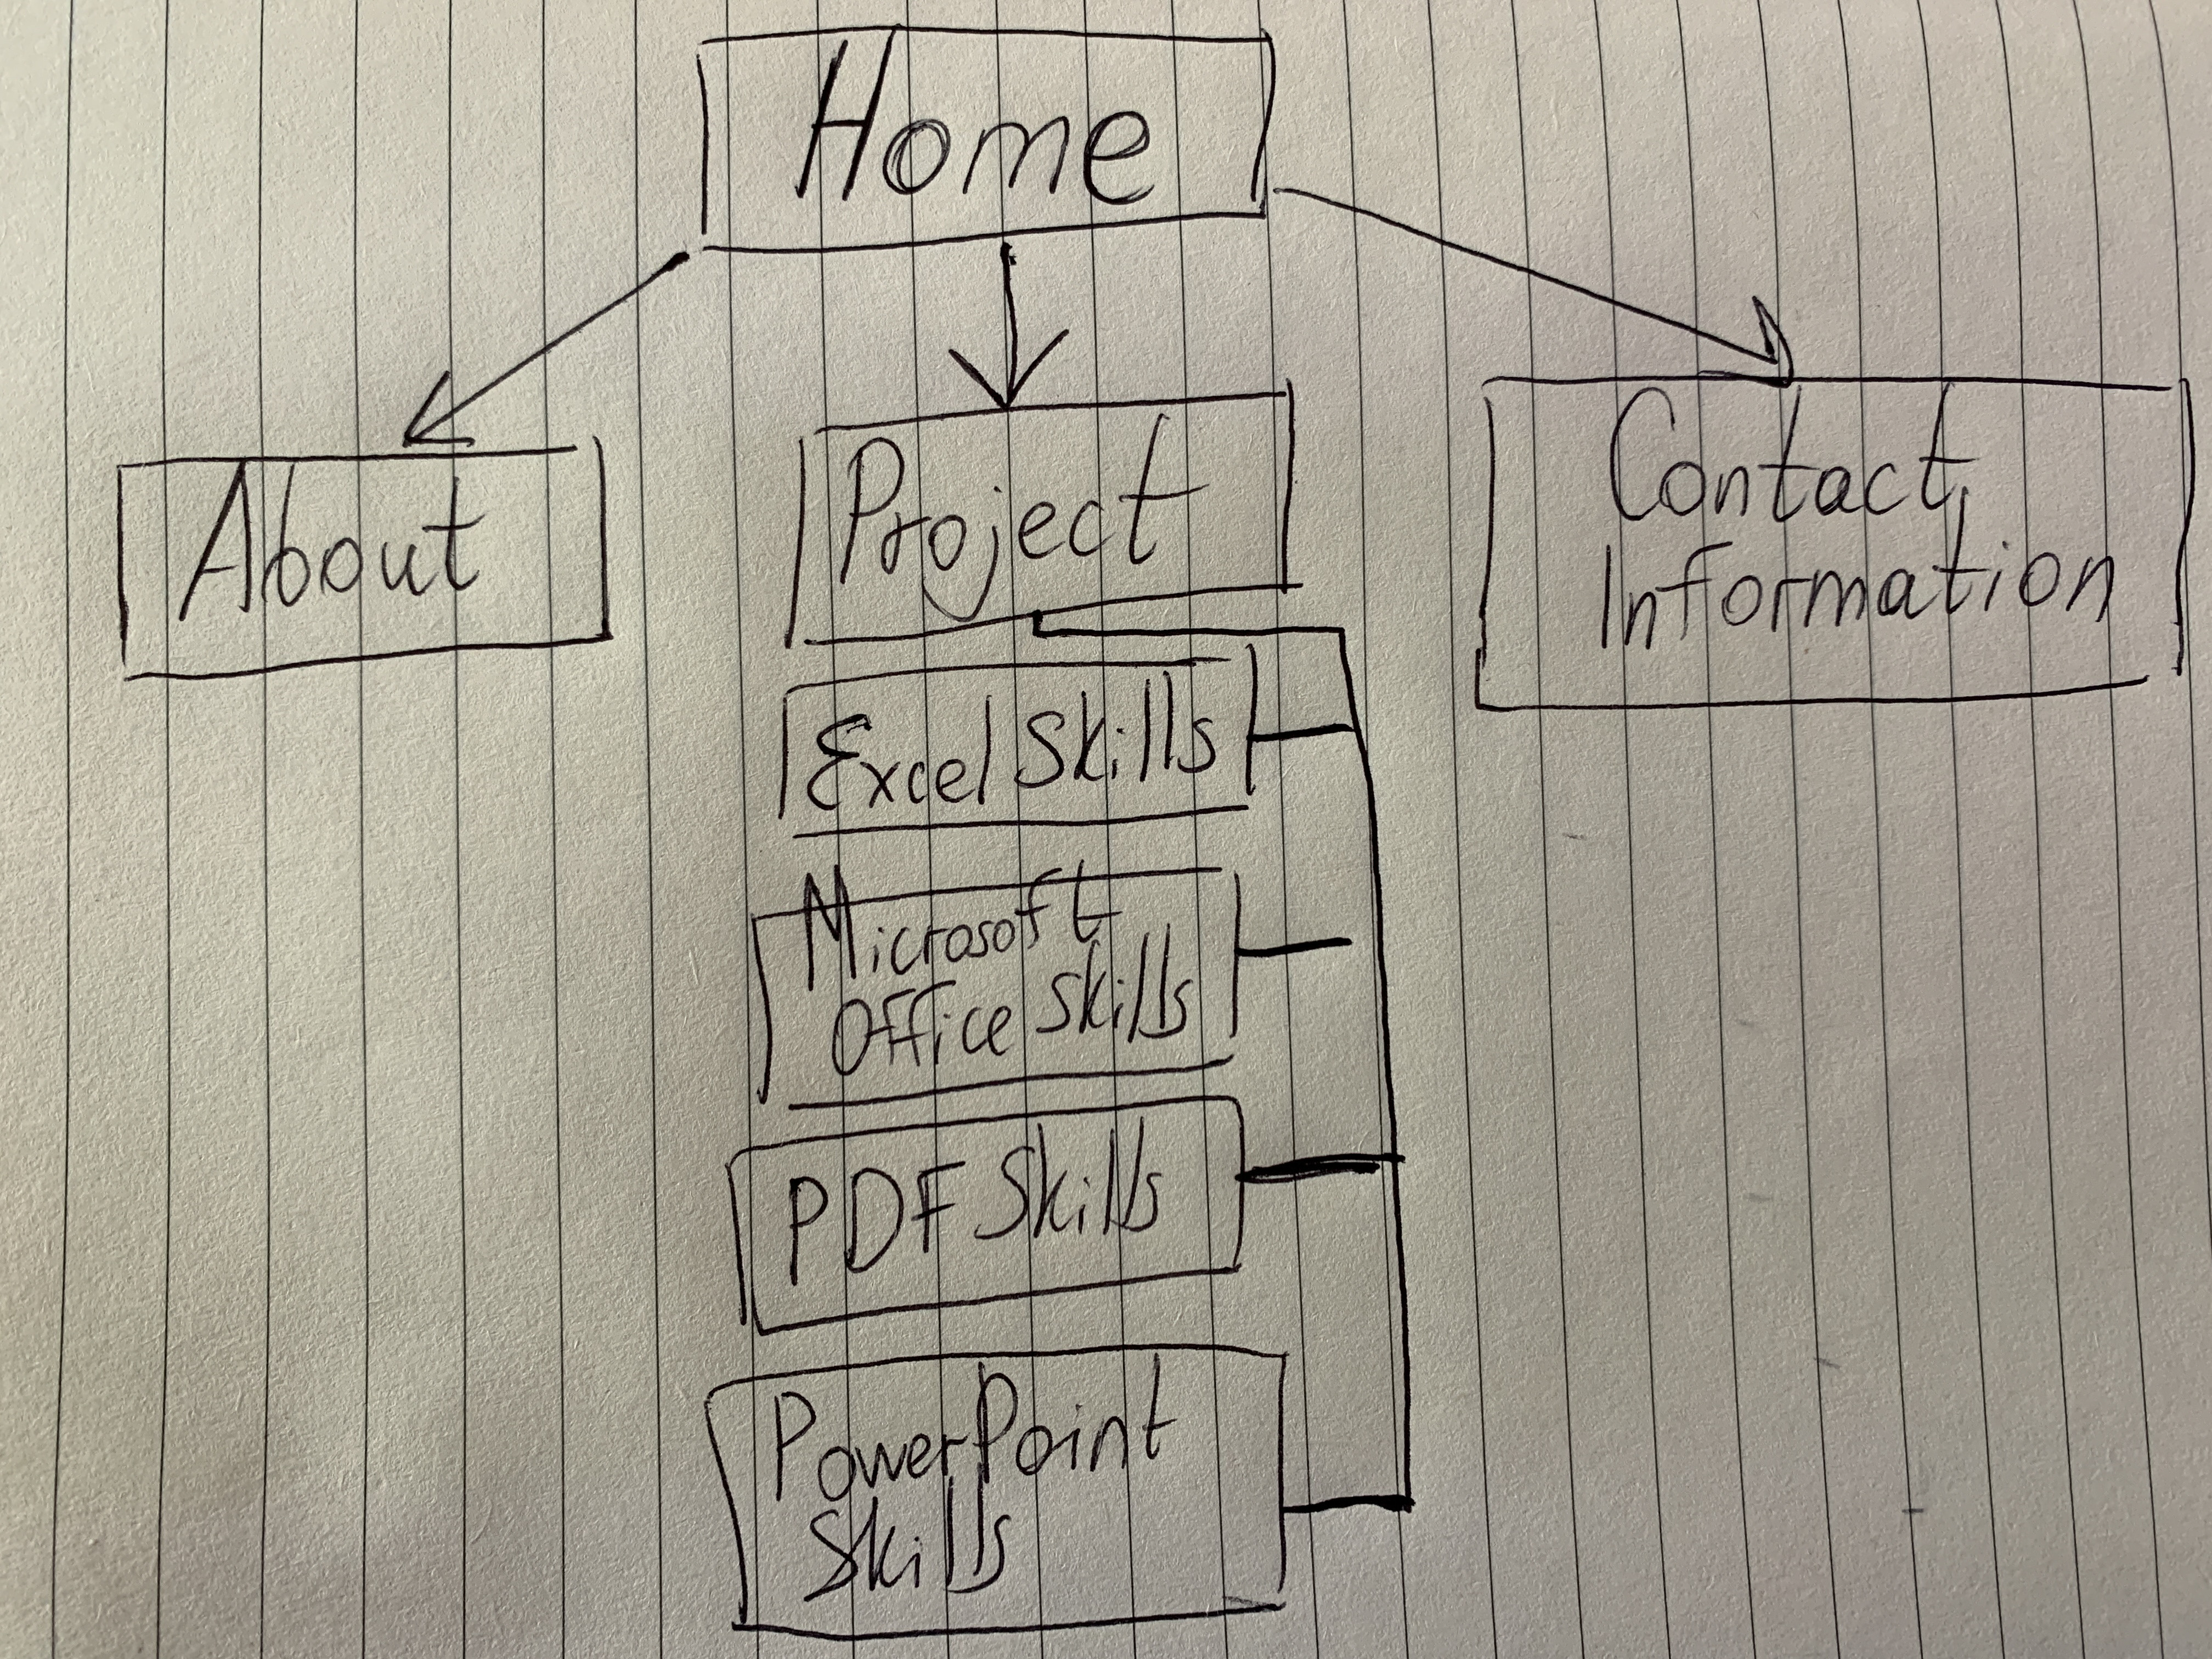 Home
About
Project
Contact
Information
Excel Skills
Microsoft
Office Skills
PDF Skills
PowerPoint
Skills